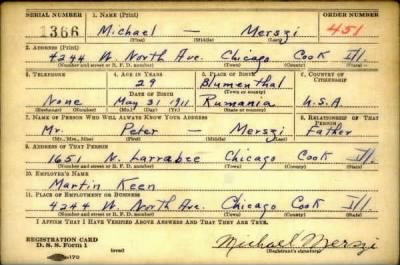 SERIAL NUMBER 1. NAME (Print) ORDER NUMBER
1366 Michael — Merszi 451
(First) (Middle) (Last)
2. ADDRESS (Print)
4244 W. North Ave. Chicago Cook Ill.
(Number and street or R. F. D. number) (Town) (County) (State)
3. TELEPHONE 4. AGE IN YEARS 5. PLACE OF BIRTH 6. COUNTRY OF CITIZENSHIP
29 Blumenthal
DATE OF BIRTH (Town or county)
None May 31 1911 Rumania U.S.A.
(Mo.) (Day) (Yr.) (State or country)
7. NAME OF PERSON WHO WILL ALWAYS KNOW YOUR ADDRESS 8. RELATIONSHIP OF THAT PERSON
Mr. Peter — Merszi Father
(Mr., Mrs., Miss) (First) (Middle) (Last)
9. ADDRESS OF THAT PERSON
1651 N. Larrabee Chicago Cook Ill.
(Number and street or R. F. D. number) (Town) (County) (State)
10. EMPLOYER'S NAME
Martin Keen
11. PLACE OF EMPLOYMENT OR BUSINESS
4244 W. North Ave. Chicago Cook Ill.
(Number and street or R. F. D. number) (Town) (County) (State)
I AFFIRM THAT I HAVE VERIFIED ABOVE ANSWERS AND THAT THEY ARE TRUE.
REGISTRATION CARD
D. S. S. Form 1 (over) Michael Merszi
(Registrant's signature)